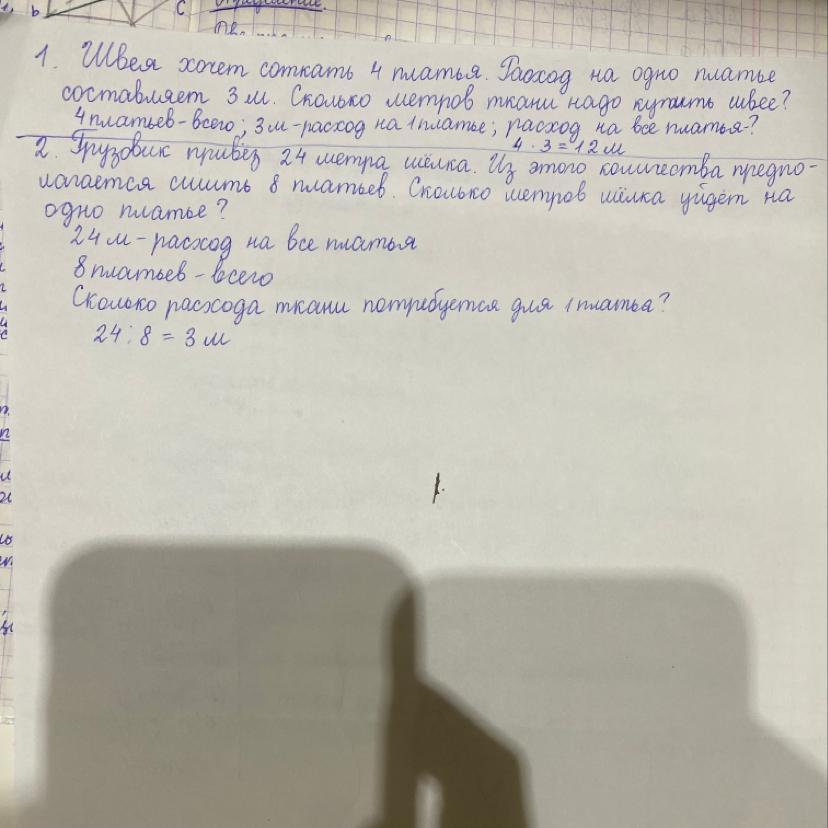 b
C
1. Швея хочет соткать 4 платья. Расход на одно платье
составляет 3 м. Сколько метров ткани надо купить швее?
4 платьев - всего; 3 м - расход на 1 платье; расход на все платья-?
4 · 3 = 12 м
2. Грузовик привёз 24 метра шёлка. Из этого количества предпо-
лагается сшить 8 платьев. Сколько метров шёлка уйдёт на
одно платье?
24 м - расход на все платья
8 платьев - всего
Сколько расхода ткани потребуется для 1 платья?
24 : 8 = 3 м